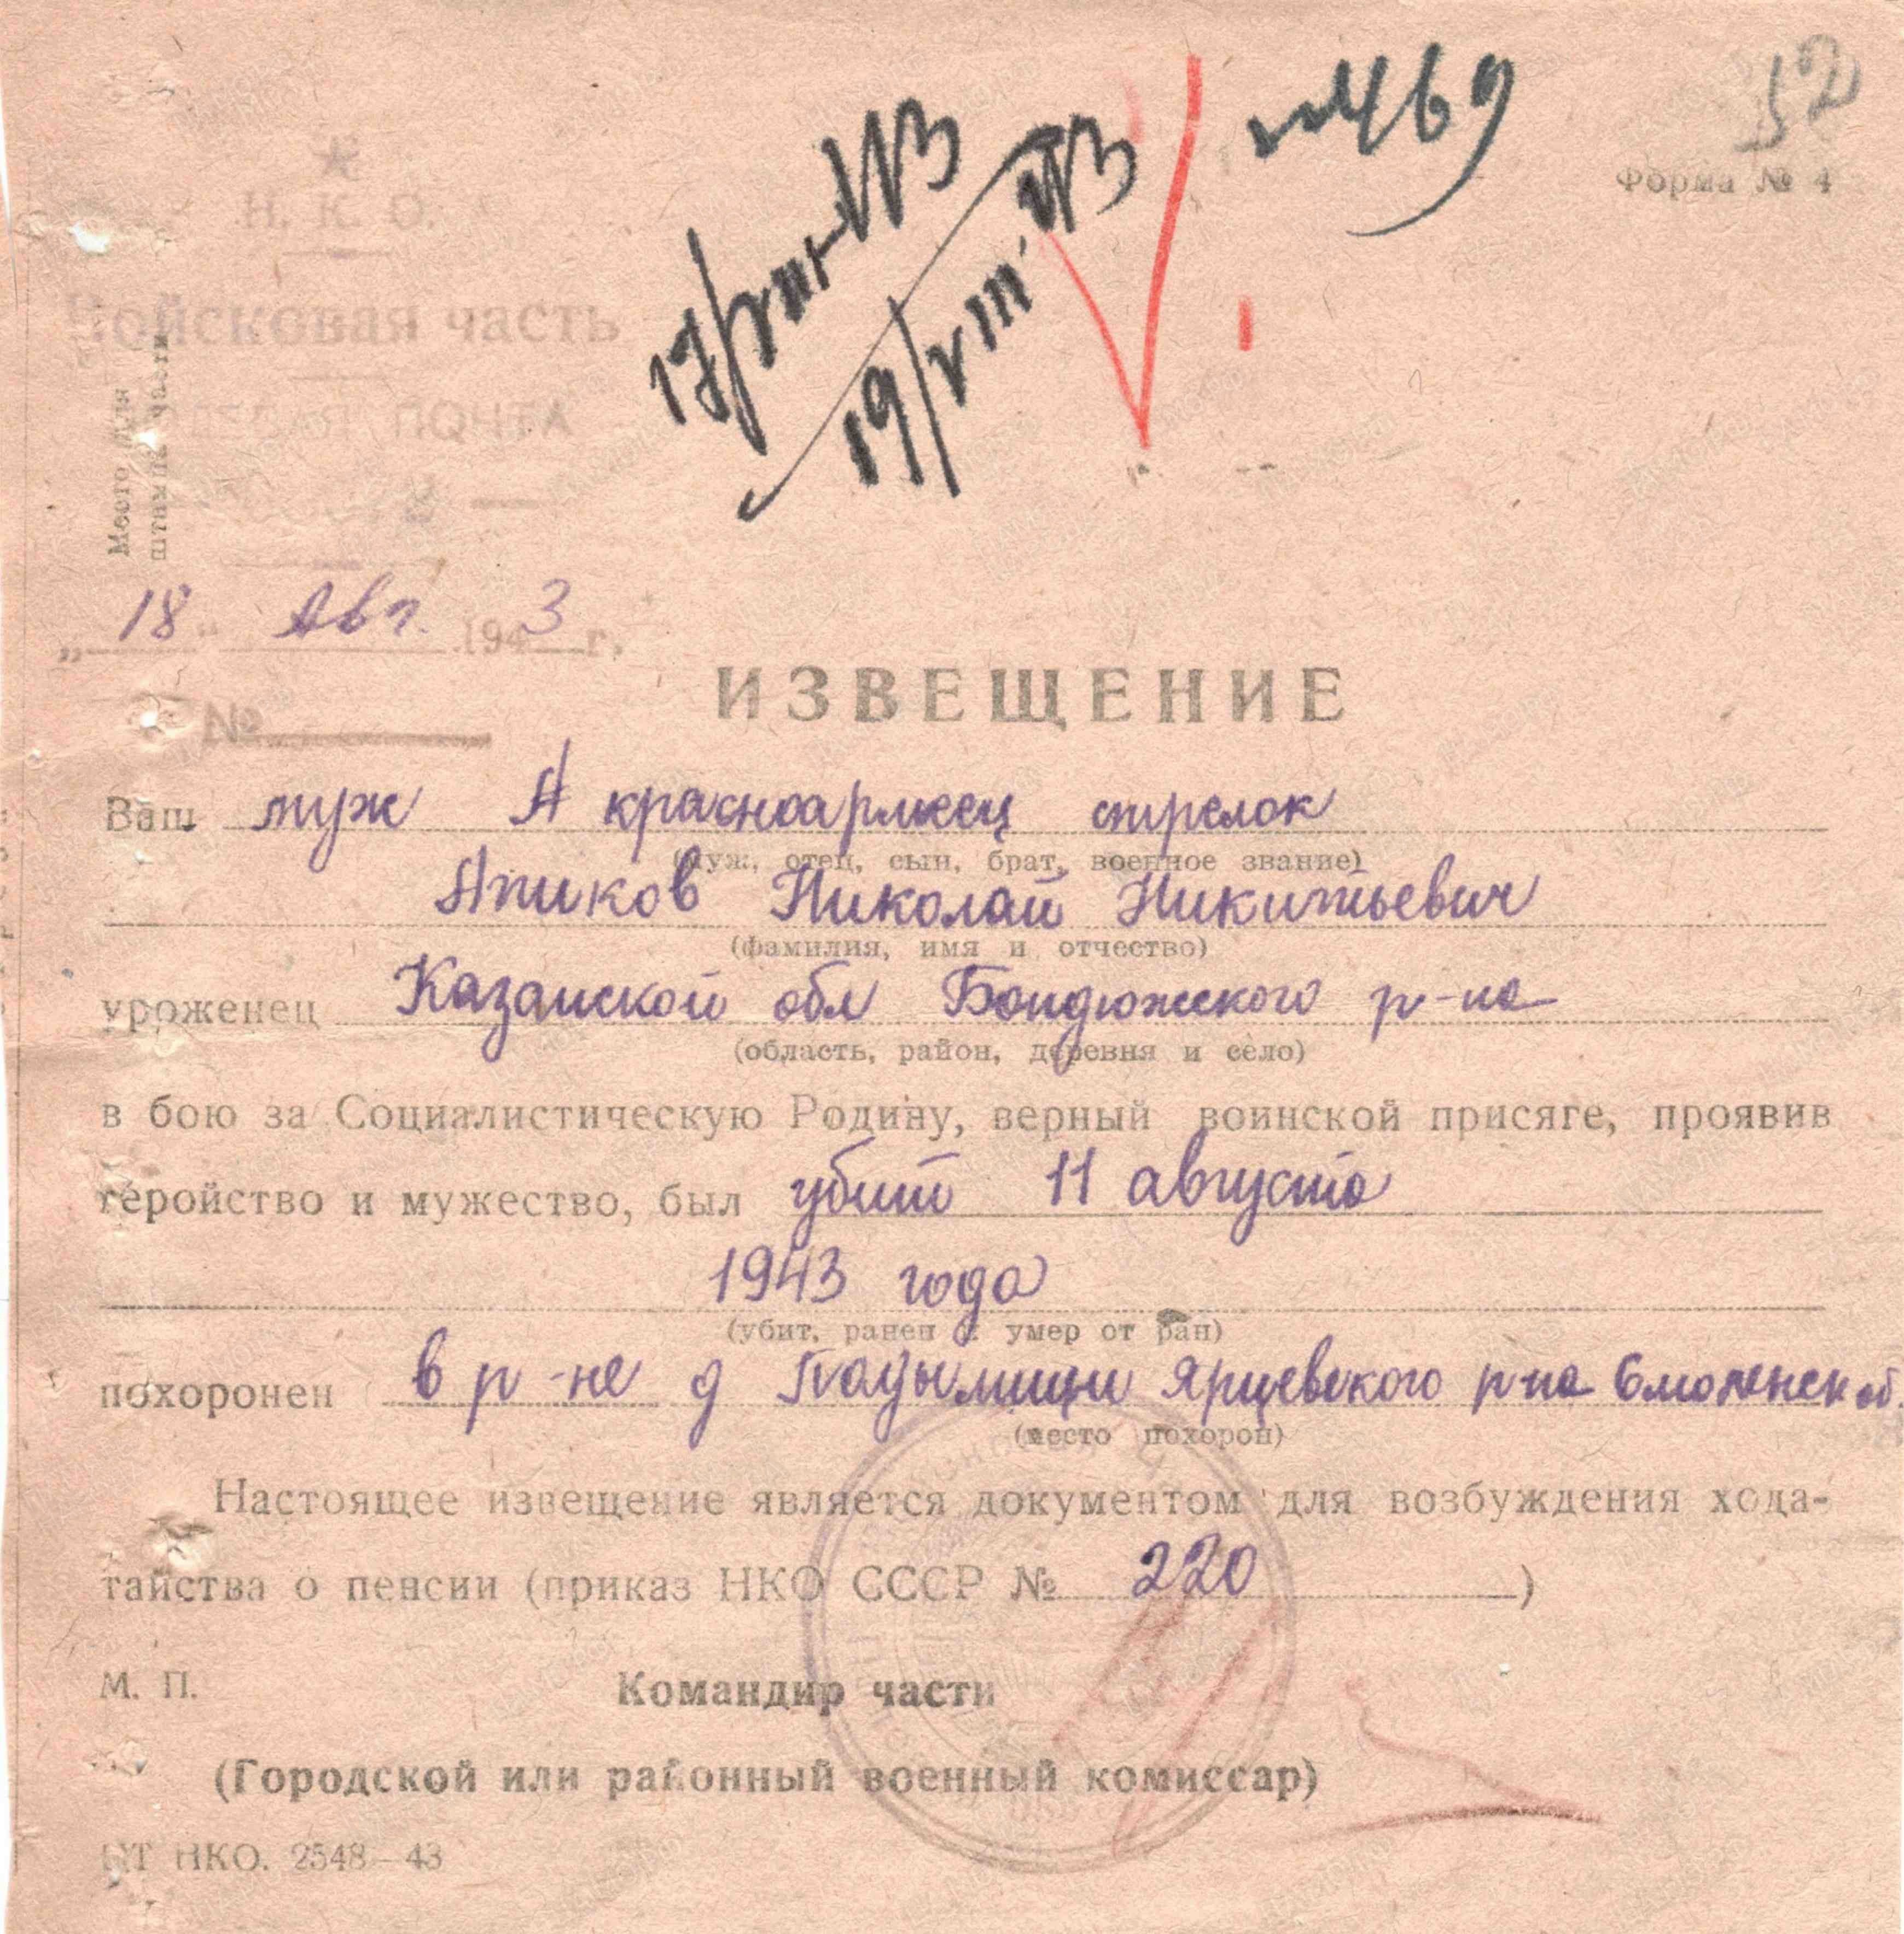 52
№ 469
Форма № 4
Н. К. О.
Войсковая часть
ПОЛЕВАЯ ПОЧТА
Место для
штампа части
17/VIII-43
19/VIII-43
„18" Авг. 1943 г.
№
ИЗВЕЩЕНИЕ
Ваш муж А красноармеец стрелок
(муж, отец, сын, брат, военное звание)
Апиков Николай Никитьевич
(фамилия, имя и отчество)
уроженец Казанской обл Бондюжского р-на
(область, район, деревня и село)
в бою за Социалистическую Родину, верный воинской присяге, проявив
геройство и мужество, был убит 11 августа
1943 года
(убит, ранен и умер от ран)
похоронен в р-не д Ярцевского р-на Смоленской об.
(место похорон)
Настоящее извещение является документом для возбуждения хода-
тайства о пенсии (приказ НКО СССР № 220)
М. П. Командир части
(Городской или районный военный комиссар)
НКО. 2548—43